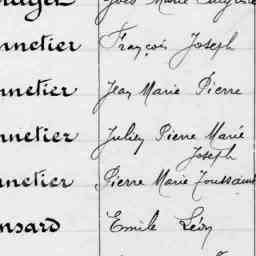 nnetier François Joseph
nnetier Jean Marie Pierre
nnetier Julien Pierre Marie
Joseph
nnetier Pierre Marie Toussaint
nsard Emile Léon